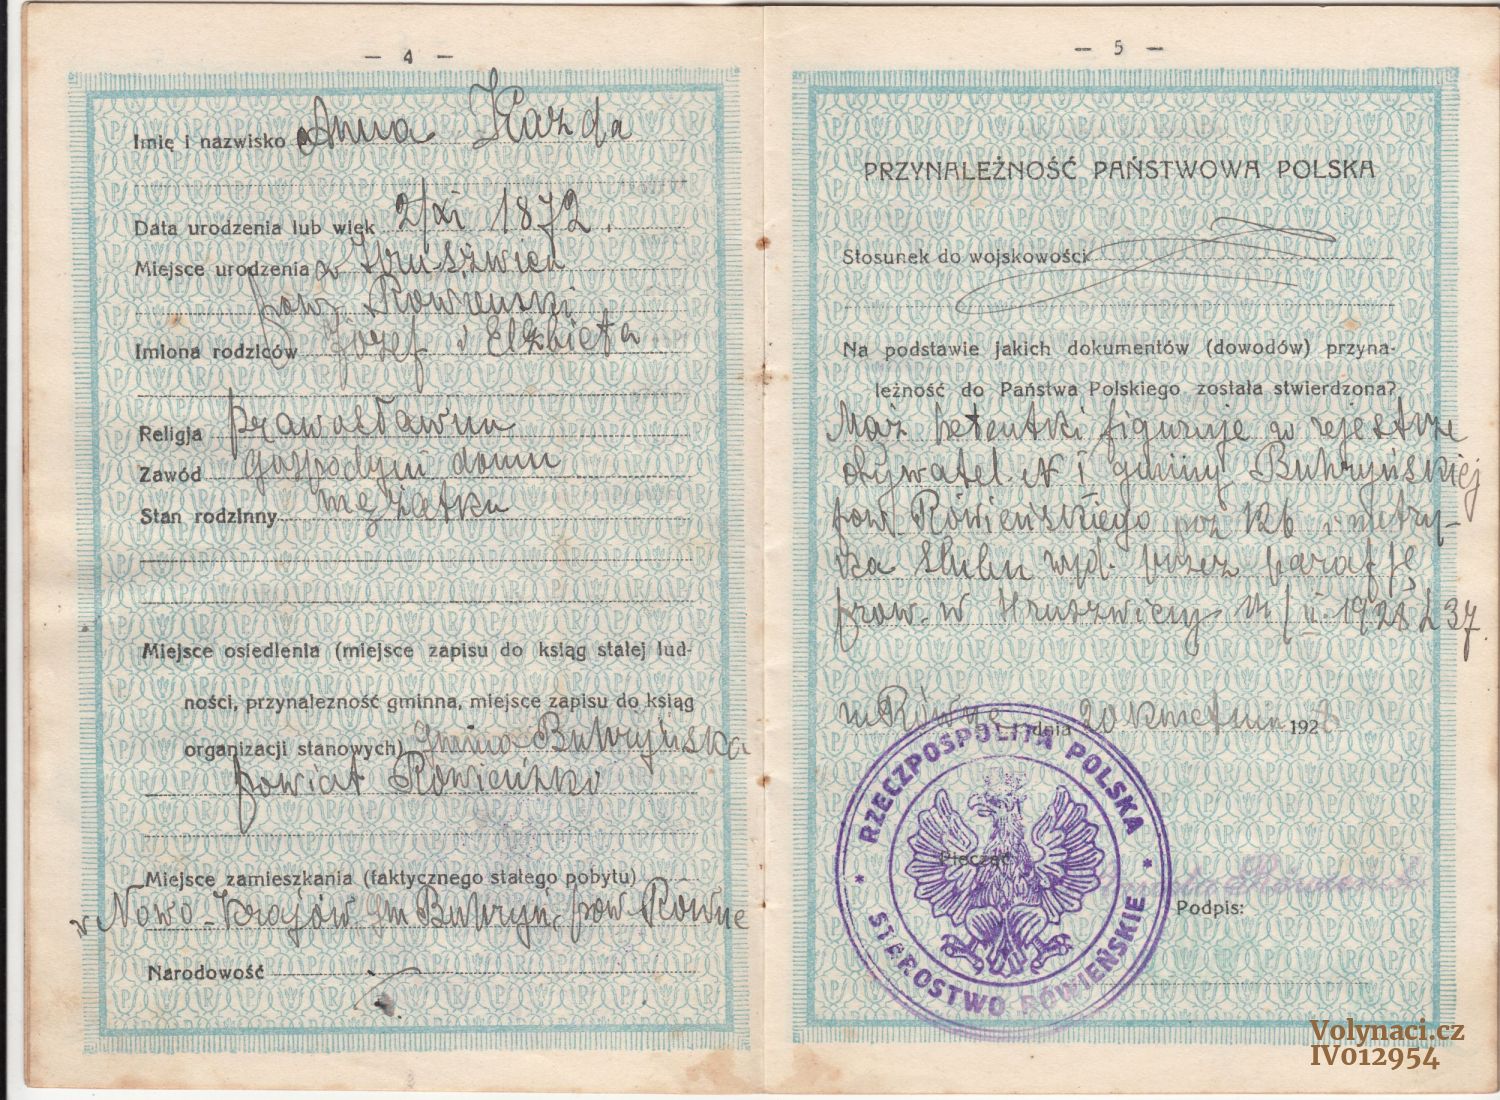 — 4 —
Imię i nazwisko Anna Każda
Data urodzenia lub więk 2/XI 1872.
Miejsce urodzenia w Hruszwicu
pow. Rowieński
Imiona rodziców Jozef i Elżbieta
Religja prawosławna
Zawód gospodyni domu
Stan rodzinny mężatka
Miejsce osiedlenia (miejsce zapisu do ksiąg stałej lud-
ności, przynależność gminna, miejsce zapisu do ksiąg
organizacji stanowych) gmina Buhryńska
powiat Rowieńsko
Miejsce zamieszkania (faktycznego stałego pobytu)
w Nowo-Krajów gm Buhryń, pow Rowne
Narodowość
— 5 —
PRZYNALEŻNOŚĆ PAŃSTWOWA POLSKA
Stosunek do wojskowości
Na podstawie jakich dokumentów (dowodów) przyna-
leżność do Państwa Polskiego została stwierdzona?
Mąż petentki figuruje w rejestrze
obywatel. N I gminy Buhryńskiej
pow. Rówieńskiego poz 126 i metry-
ka ślubu wyd. przez parafję
praw. w Hruszwicy II. 1928 L 37
m. Równe dnia 20 kwietnia 1928
RZECZPOSPOLITA POLSKA
* STAROSTWO RÓWIEŃSKIE *
Pieczęć
Podpis:
Volynaci.cz
IV012954